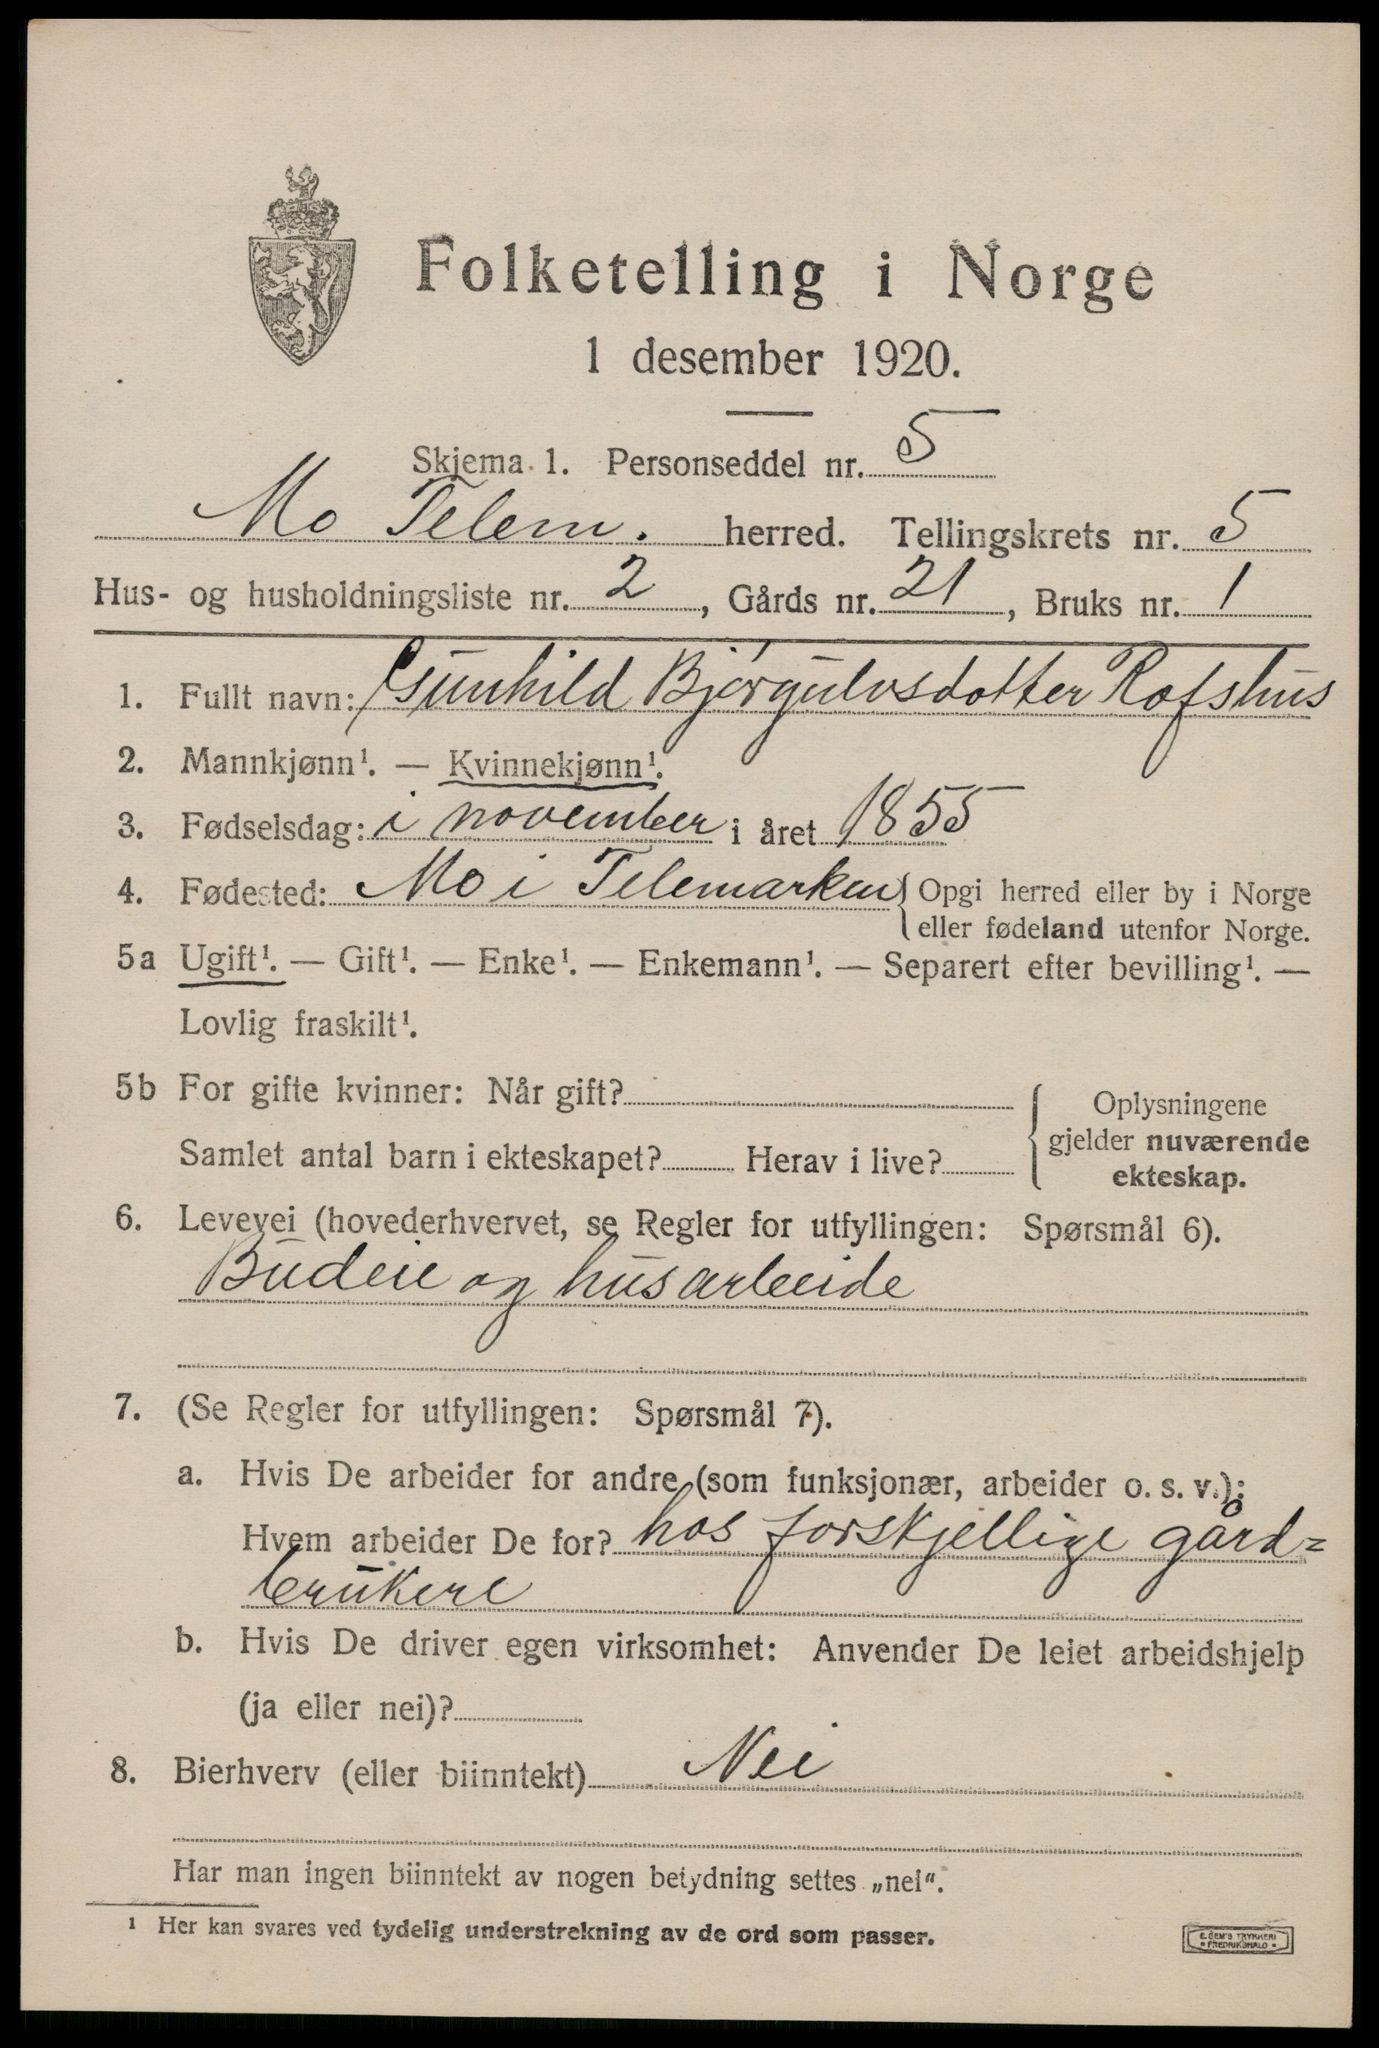 Folketelling i Norge
1 desember 1920.
Skjema 1. Personseddel nr. 5
Mo Telem. herred. Tellingskrets nr. 5
Hus- og husholdningsliste nr. 2, Gårds nr. 21, Bruks nr. 1
1. Fullt navn: Gunhild Bjørgulvsdotter Rofshus
2. Mannkjønn¹. — Kvinnekjønn¹.
3. Fødselsdag: i november i året 1855
4. Fødested: Mo i Telemarken { Opgi herred eller by i Norge
eller fødeland utenfor Norge.
5a Ugift¹. — Gift¹. — Enke¹. — Enkemann¹. — Separert efter bevilling¹. —
Lovlig fraskilt¹.
5b For gifte kvinner: Når gift?
Samlet antal barn i ekteskapet? Herav i live?
Oplysningene
gjelder nuværende
ekteskap.
6. Levevei (hovederhvervet, se Regler for utfyllingen: Spørsmål 6).
Budeie og husarbeide
7. (Se Regler for utfyllingen: Spørsmål 7).
a. Hvis De arbeider for andre (som funksjonær, arbeider o. s. v.):
Hvem arbeider De for? hos forskjellige gård=
brukere
b. Hvis De driver egen virksomhet: Anvender De leiet arbeidshjelp
(ja eller nei)?
8. Bierhverv (eller biinntekt) Nei
Har man ingen biinntekt av nogen betydning settes „nei“.
¹ Her kan svares ved tydelig understrekning av de ord som passer.
E. SEM'S TRYKKERI
• FREDRIKSHALD •